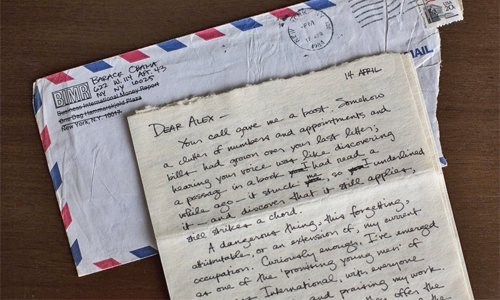 BARACK OBAMA
622 W. 114 APT. 43
NY NY 10025
BIMR
Business International Money Report
One Dag Hammarskjold Plaza
New York, N.Y. 10017
PM
1984
USA
20c
MAIL
14 APRIL
DEAR ALEX -
Your call gave me a boost. Somehow
a clutter of numbers and appointments and
bills had grown over your last letter;
hearing your voice was like discovering
a passage in a book I had read a
while ago - it struck me, so I underlined
it - and discover that it still applies,
still strikes a chord.
A dangerous thing, this forgetting,
attributable, or an extension of, my current
occupation. Curiously enough, I've emerged
as one of the "promising young men" of
International, with everyone
and praising my work.
offer the